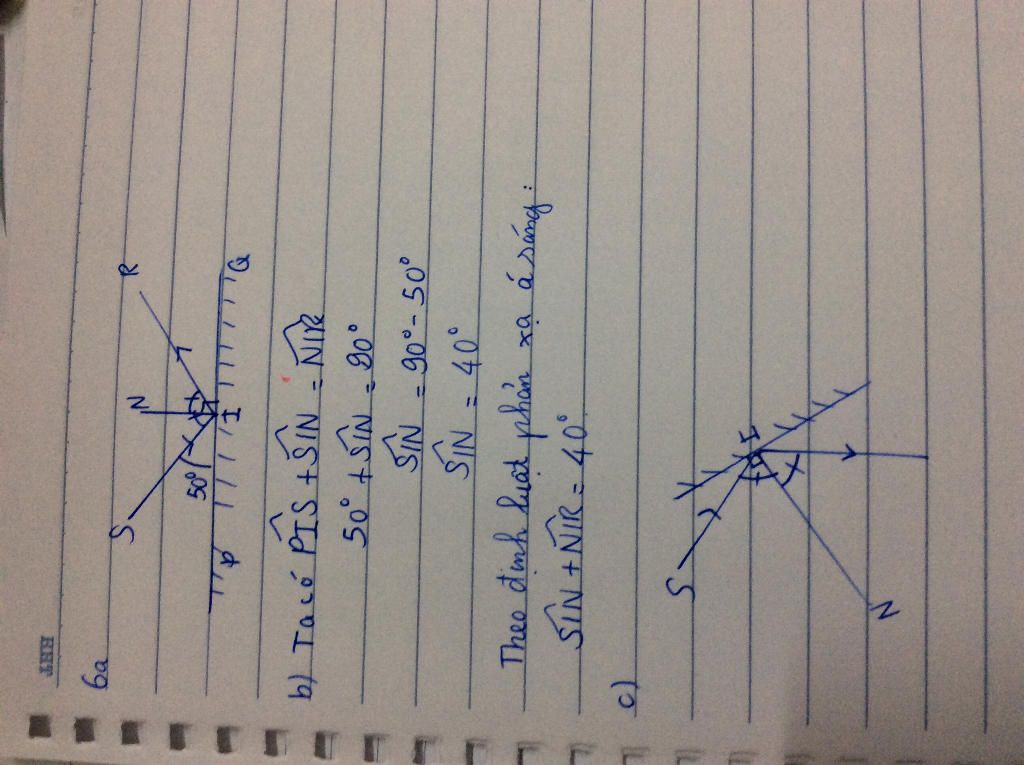 6a
S
N
R
50°
P
I
Q
b) Ta có PIS + SIN = NIR
50° + SIN = 90°
SIN = 90° - 50°
SIN = 40°
Theo định luật phản xạ á sáng:
SIN + NIR = 40°
c)
S
I
N